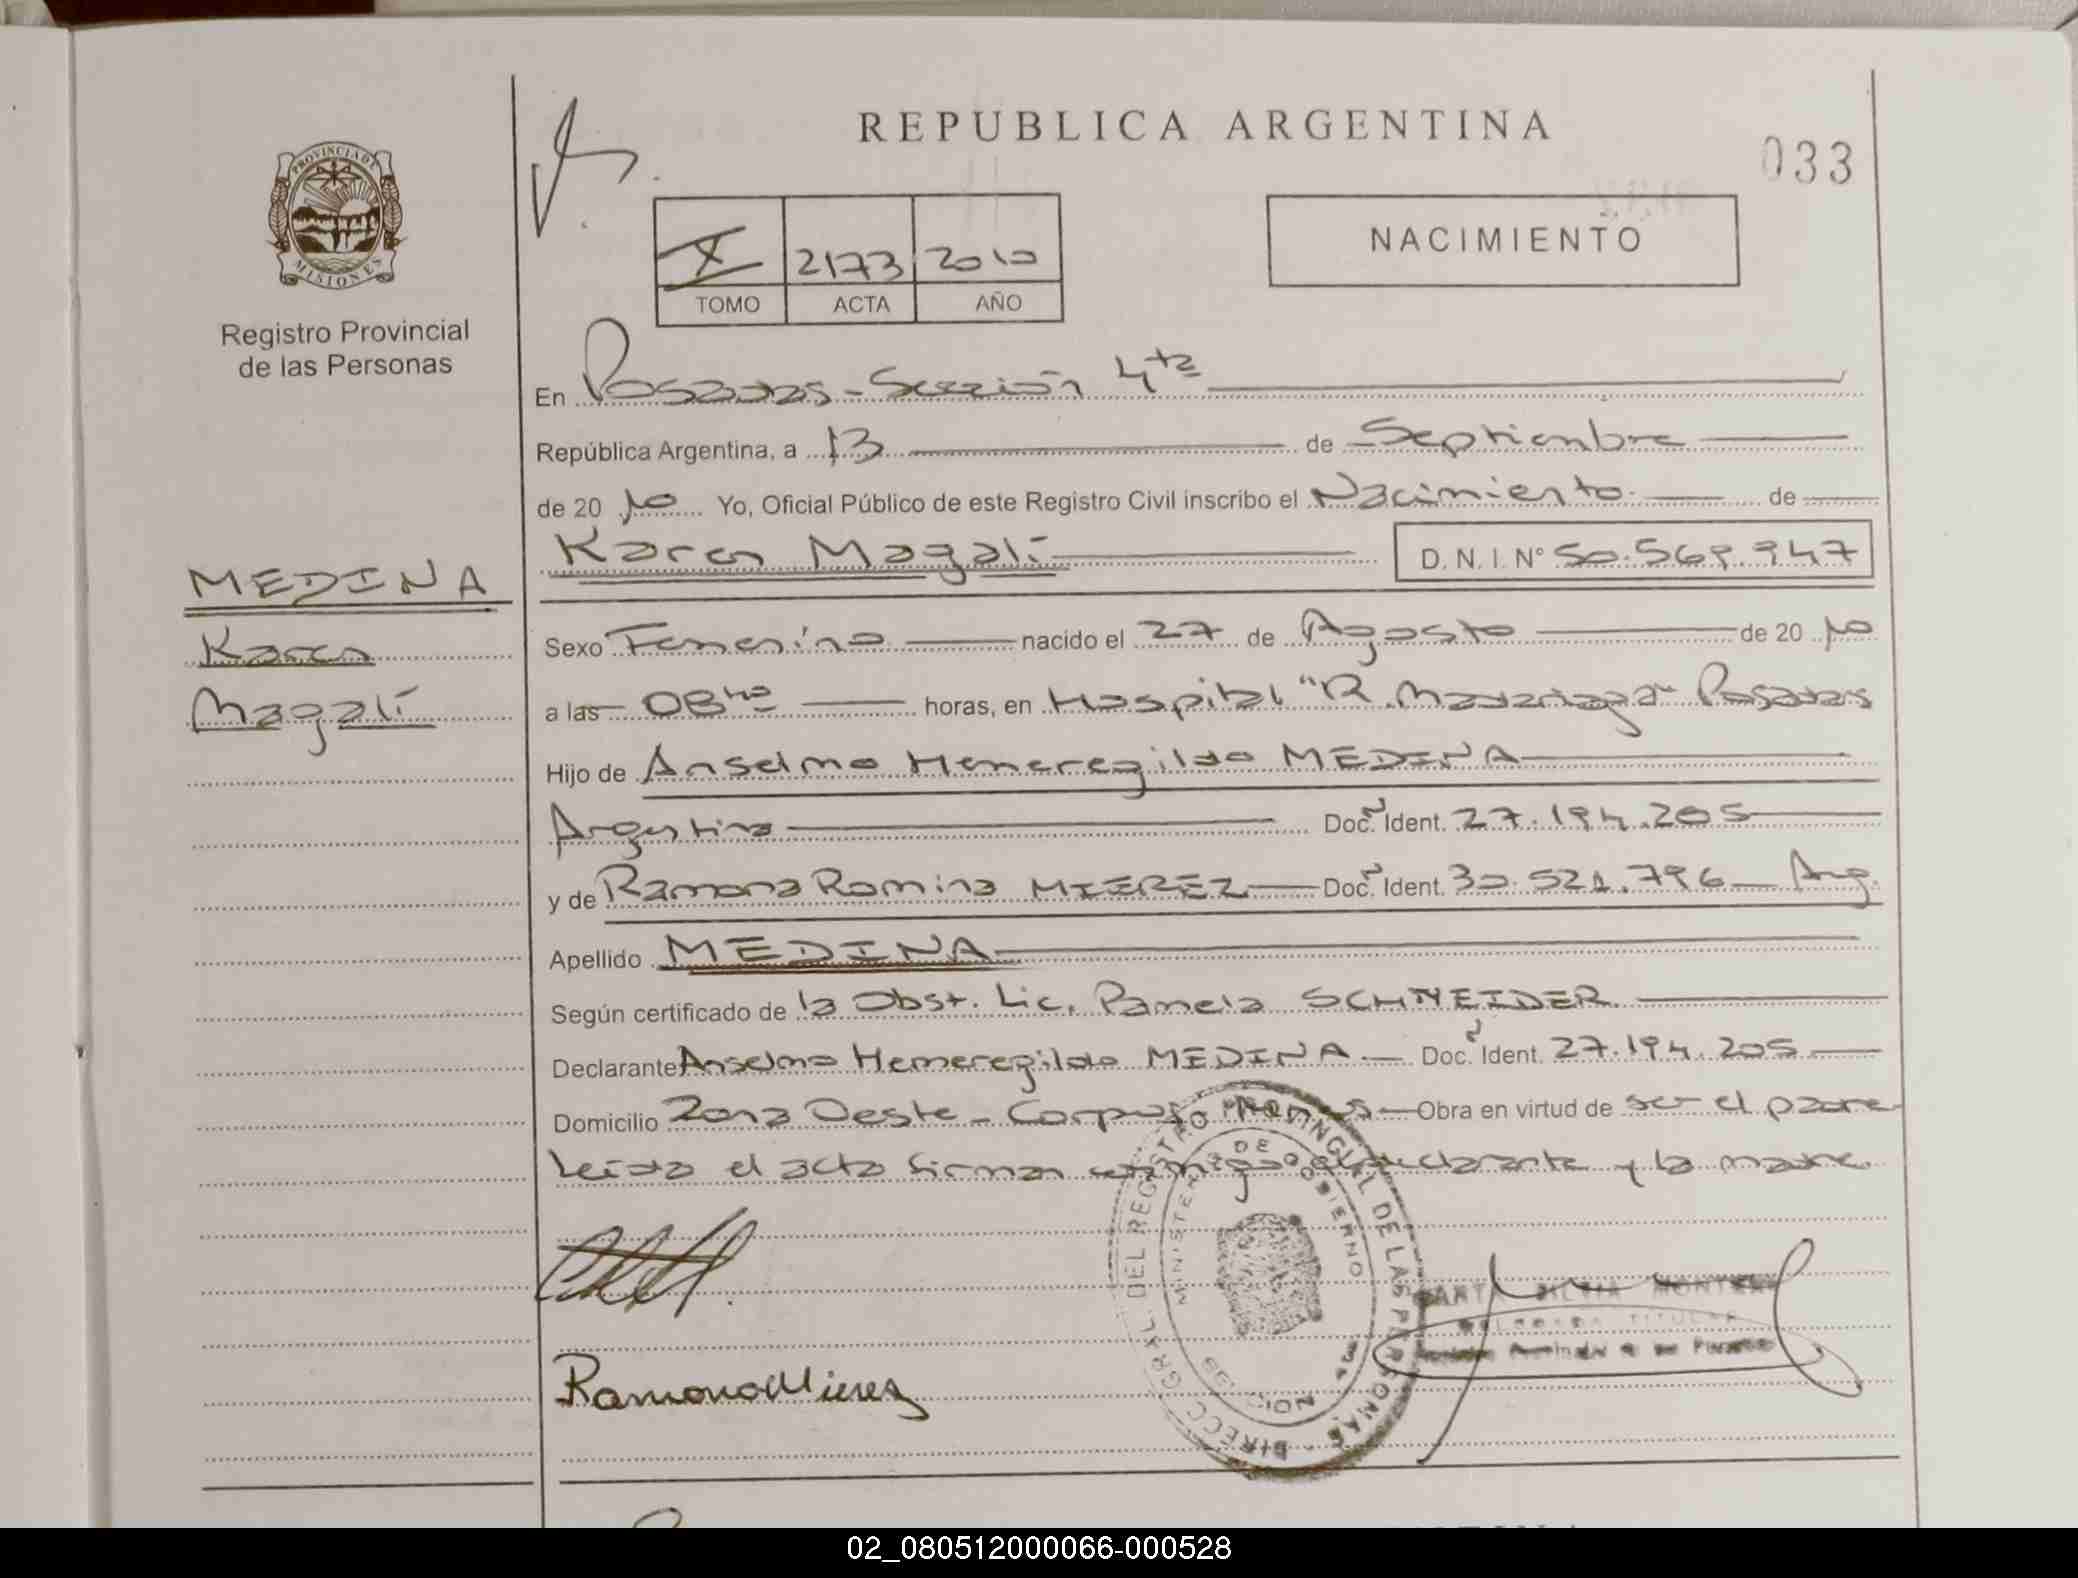 REPUBLICA ARGENTINA
033
PROVINCIA DE MISIONES
Registro Provincial
de las Personas
X 2173 2010
TOMO ACTA AÑO
NACIMIENTO
En Posadas - Sección 4ta
República Argentina, a 13 de Septiembre
de 20 10 Yo, Oficial Público de este Registro Civil inscribo el Nacimiento de
Karen Magalí D. N. I. N° 50.569.947
MEDINA
Karen
Magalí
Sexo Femenino nacido el 27 de Agosto de 20 10
a las 08hs horas, en Hospital "R. Madariaga" Posadas
Hijo de Anselmo Hemeregildo MEDINA
Argentina Doc. Ident. 27.194.205
y de Ramona Romina MIEREZ Doc. Ident. 30.521.796 Arg.
Apellido MEDINA
Según certificado de la Obst. Lic. Pamela SCHNEIDER
Declarante Anselmo Hemeregildo MEDINA Doc. Ident. 27.194.205
Domicilio Zona Oeste - Corpus Obra en virtud de ser el padre
Leída el acta firman conmigo el declarante y la madre
Ramona Mierez
DIRECC. GRAL. DEL REGISTRO PROVINCIAL DE LAS PERSONAS
MINISTERIO DE GOBIERNO
02_080512000066-000528